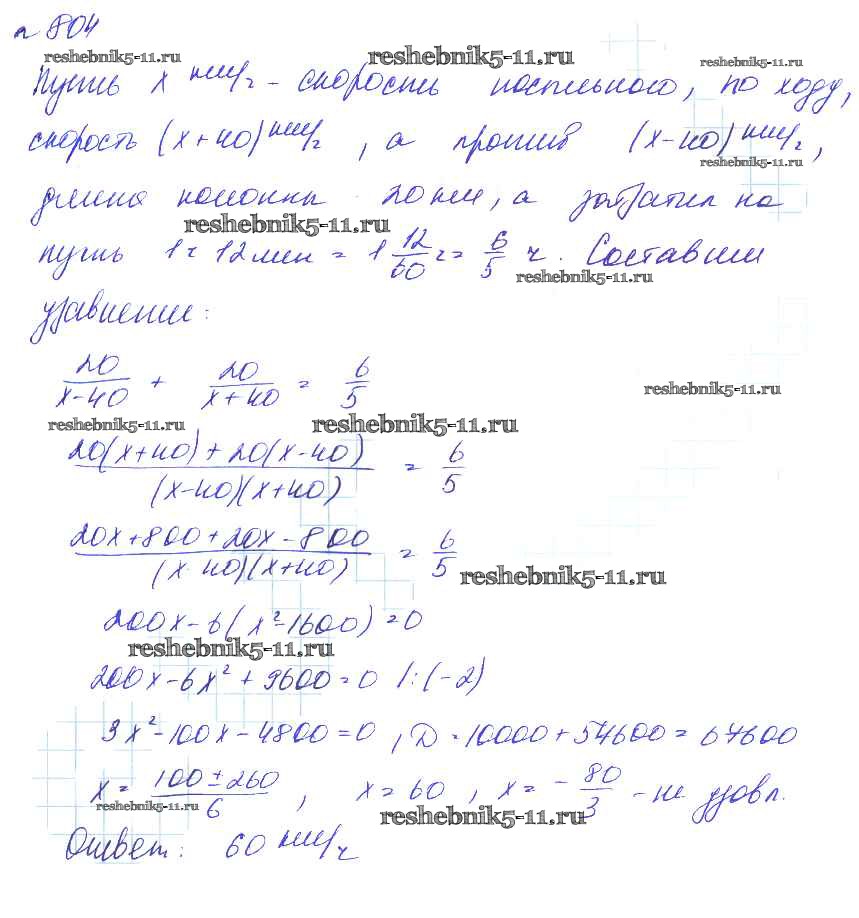 № 804
reshebnik5-11.ru reshebnik5-11.ru reshebnik5-11.ru
Пусть x км/ч - скорость посыльного, по ходу,
скорость (x+40) км/ч, а против (x-40) км/ч,
reshebnik5-11.ru
длина колонны 20 км, а затратил на
reshebnik5-11.ru
путь 1ч 12 мин = 1 12/60 ч = 6/5 ч. Составим
reshebnik5-11.ru
уравнение:
20/(x-40) + 20/(x+40) = 6/5
reshebnik5-11.ru
reshebnik5-11.ru reshebnik5-11.ru
(20(x+40)+20(x-40))/((x-40)(x+40)) = 6/5
(20x+800+20x-800)/((x-40)(x+40)) = 6/5
reshebnik5-11.ru
200x-6(x²-1600)=0
reshebnik5-11.ru
200x-6x²+9600=0 /:(-2)
3x²-100x-4800=0, D=10000+57600=67600
x = (100±260)/6, x=60, x=-80/3 - не удовл.
reshebnik5-11.ru reshebnik5-11.ru
Ответ: 60 км/ч